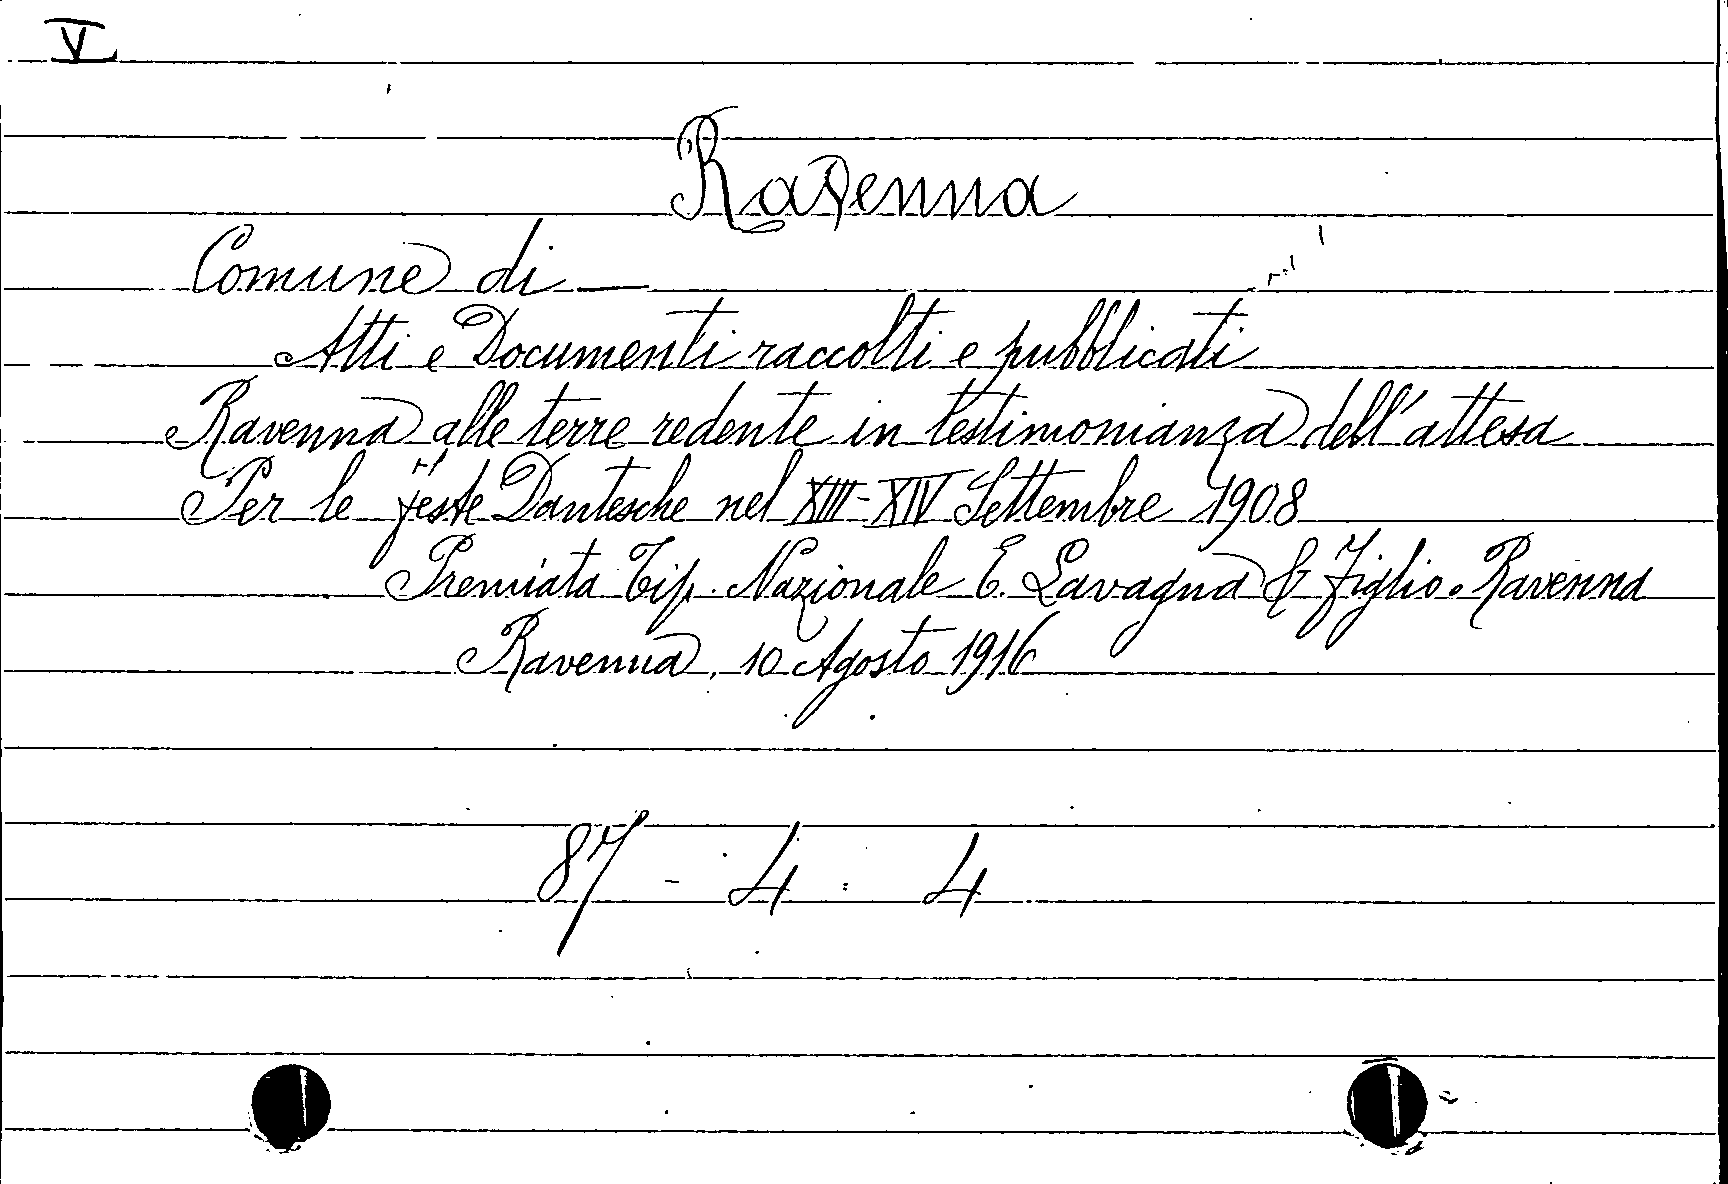 V
Ravenna
Comune di —
Atti e Documenti raccolti e pubblicati
Ravenna alle terre redente in testimonianza dell'attesa
Per le feste Dantesche nel XIII-XIV Settembre 1908
Premiata Tip. Nazionale E. Lavagna & Figlio. Ravenna
Ravenna, 10 Agosto 1916
87 - 4 : 4